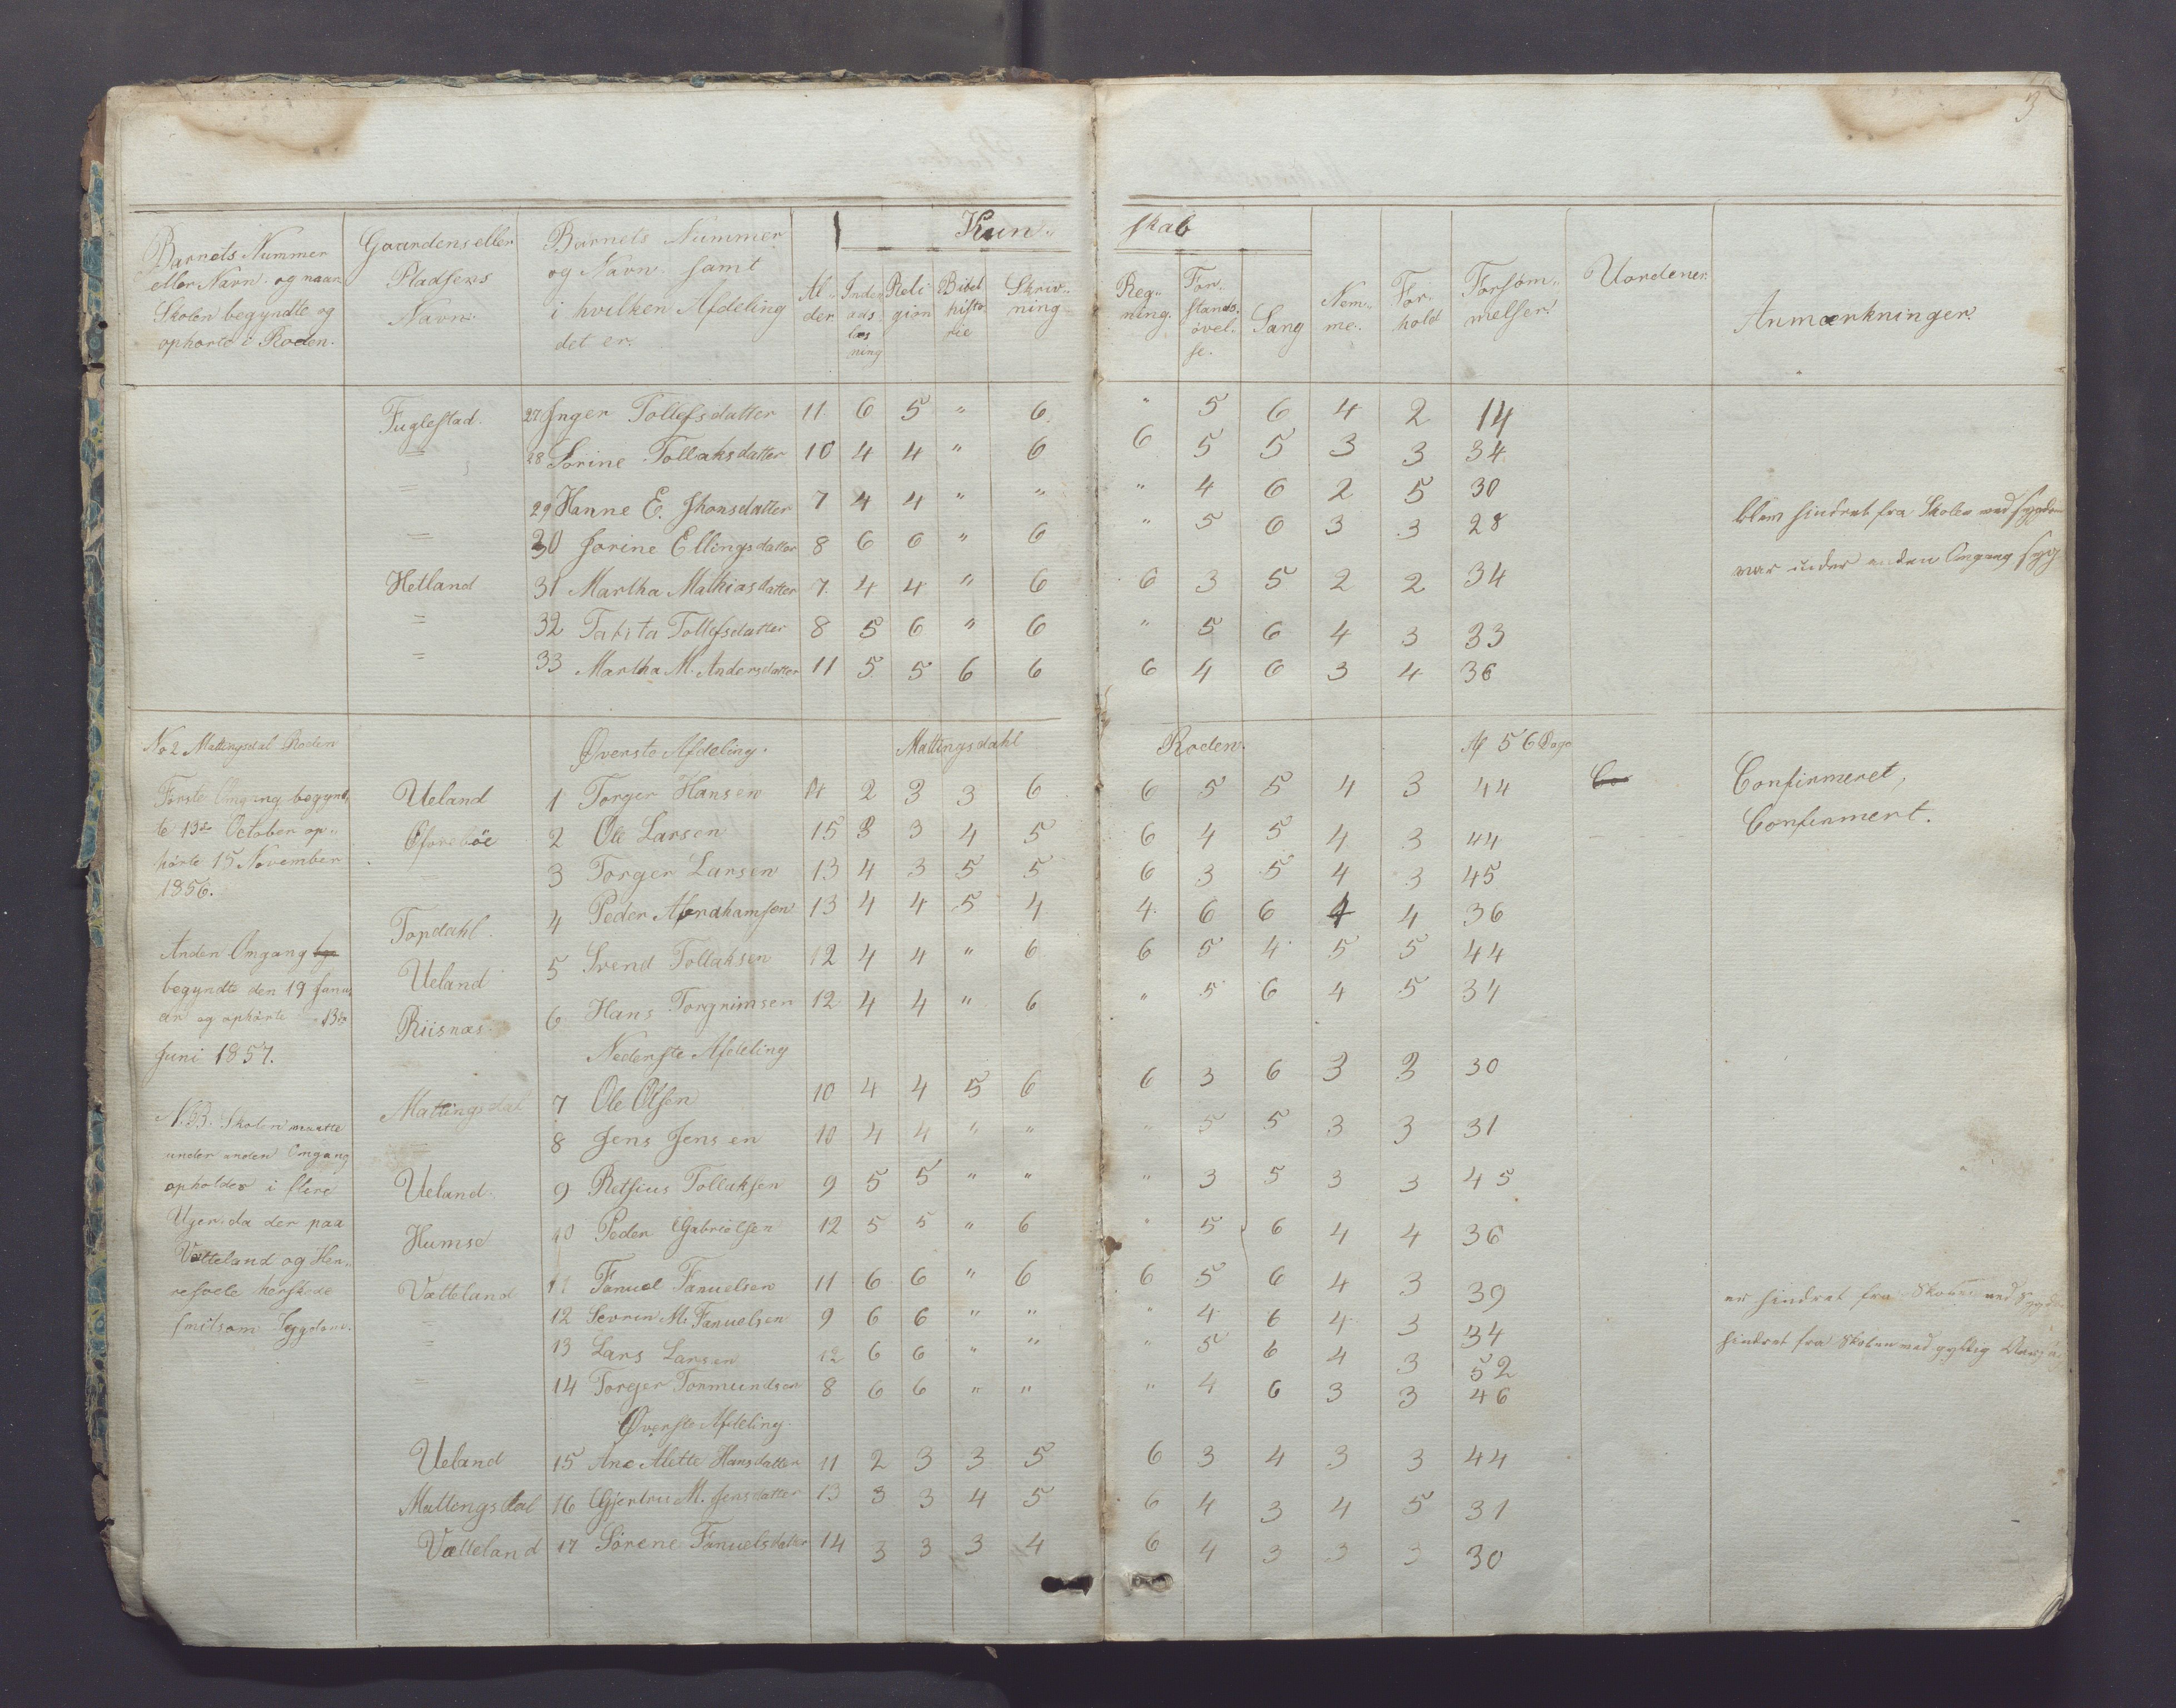 3
Barnets Nummer eller Navn og naar Skolen begyndte og ophørte i Roden.
Gaardens eller Pladsens Navn.
Barnets Nummer og Navn samt i hvilken Afdeling det er.
Al-der
Kun-skab
Inden-ads læs-ning
Reli-gion
Bibel histo-rie
Skriv-ning
Reg-ning.
For-stands-øvel-se.
Sang
Nem-me.
For-hold
Forsøm-melser.
Uordener.
Anmærkninger.
Fuglestad. 27 Inger Tollefsdatter 11 6 5 " 6 " 5 6 4 2 14
= 28 Sorine Tollaksdatter 10 4 4 " 6 6 5 5 3 3 34
= 29 Hanne E. Jhonsdatter 7 4 4 " " " 4 6 2 5 30 blev hindret fra Skolen ved Sygdom
= 30 Jorine Ellingsdatter 8 6 6 " 6 " 5 6 3 3 28 var under anden Omgang syg
Hetland 31 Martha Mathiasdatter 7 4 4 " 6 6 3 5 2 2 34
= 32 Tabita Tollefsdatter 8 5 6 " 6 " 5 6 4 3 33
= 33 Martha M. Andersdatter 11 5 5 6 6 6 4 6 3 4 36
No 2 Mattingsdal Roden
Øverste Afdeling. Mattingsdahl Roden. Af 56 Dage
Første Omgang begynd-
te 13de October op-
hørte 15 November
1856.
Anden Omgang
begyndte den 19 Janu-
ar og ophørte 13de
Juni 1857.
N.B. Skolen maatte
under anden Omgang
opholdes i flere
Uger da der paa
Vatteland og Hen-
herskede
smitsom Sygdom.
Ueland 1 Torger Hansen 14 2 3 3 6 6 5 5 4 3 44 Confirmeret,
2 Ole Larsen 15 3 3 4 5 6 4 5 4 3 44 Confirmert.
= 3 Torger Larsen 13 4 3 5 5 6 3 5 4 3 45
Topdahl. 4 Peder Abrahamsen 13 4 4 5 4 4 6 6 4 4 36
Ueland 5 Svend Tollaksen 12 4 4 " 6 6 5 4 5 5 44
Riisnæs. 6 Hans Torgrimsen 12 4 4 " 6 " 5 6 4 5 34
Nederste Afdeling
Mattingsdal 7 Ole Olsen 10 4 4 5 6 6 3 6 3 3 30
= 8 Jens Jensen 10 4 4 " " " 5 5 3 3 31
Ueland. 9 Retsius Tollaksen 9 5 5 " " " 3 5 3 3 45
Humse 10 Peder Gabrielsen 12 5 5 " 6 " 5 6 4 4 36
Vatteland 11 Fanuel Fanuelsen 11 6 6 " 6 6 5 6 4 3 39
= 12 Sevrin M. Fanuelsen 9 6 6 " " " 4 6 4 3 34 er hindret fra Skolen ved Sygdom
= 13 Lars Larsen 12 6 6 " " " 5 6 4 3 52 hindret fra Skolen ved gyldig Aarsag
= 14 Torger Tormundsen 8 6 6 " " " 4 6 3 3 46
Øverste Afdeling.
Ueland 15 Ane Alette Hansdatter 11 2 3 3 5 6 3 4 3 3 44
Mattingsdal 16 Gjertrus M. Jensdatter 13 3 3 4 5 6 4 3 4 5 31
Vatteland 17 Sørene Fanuelsdatter 14 3 3 3 4 6 4 3 3 3 30